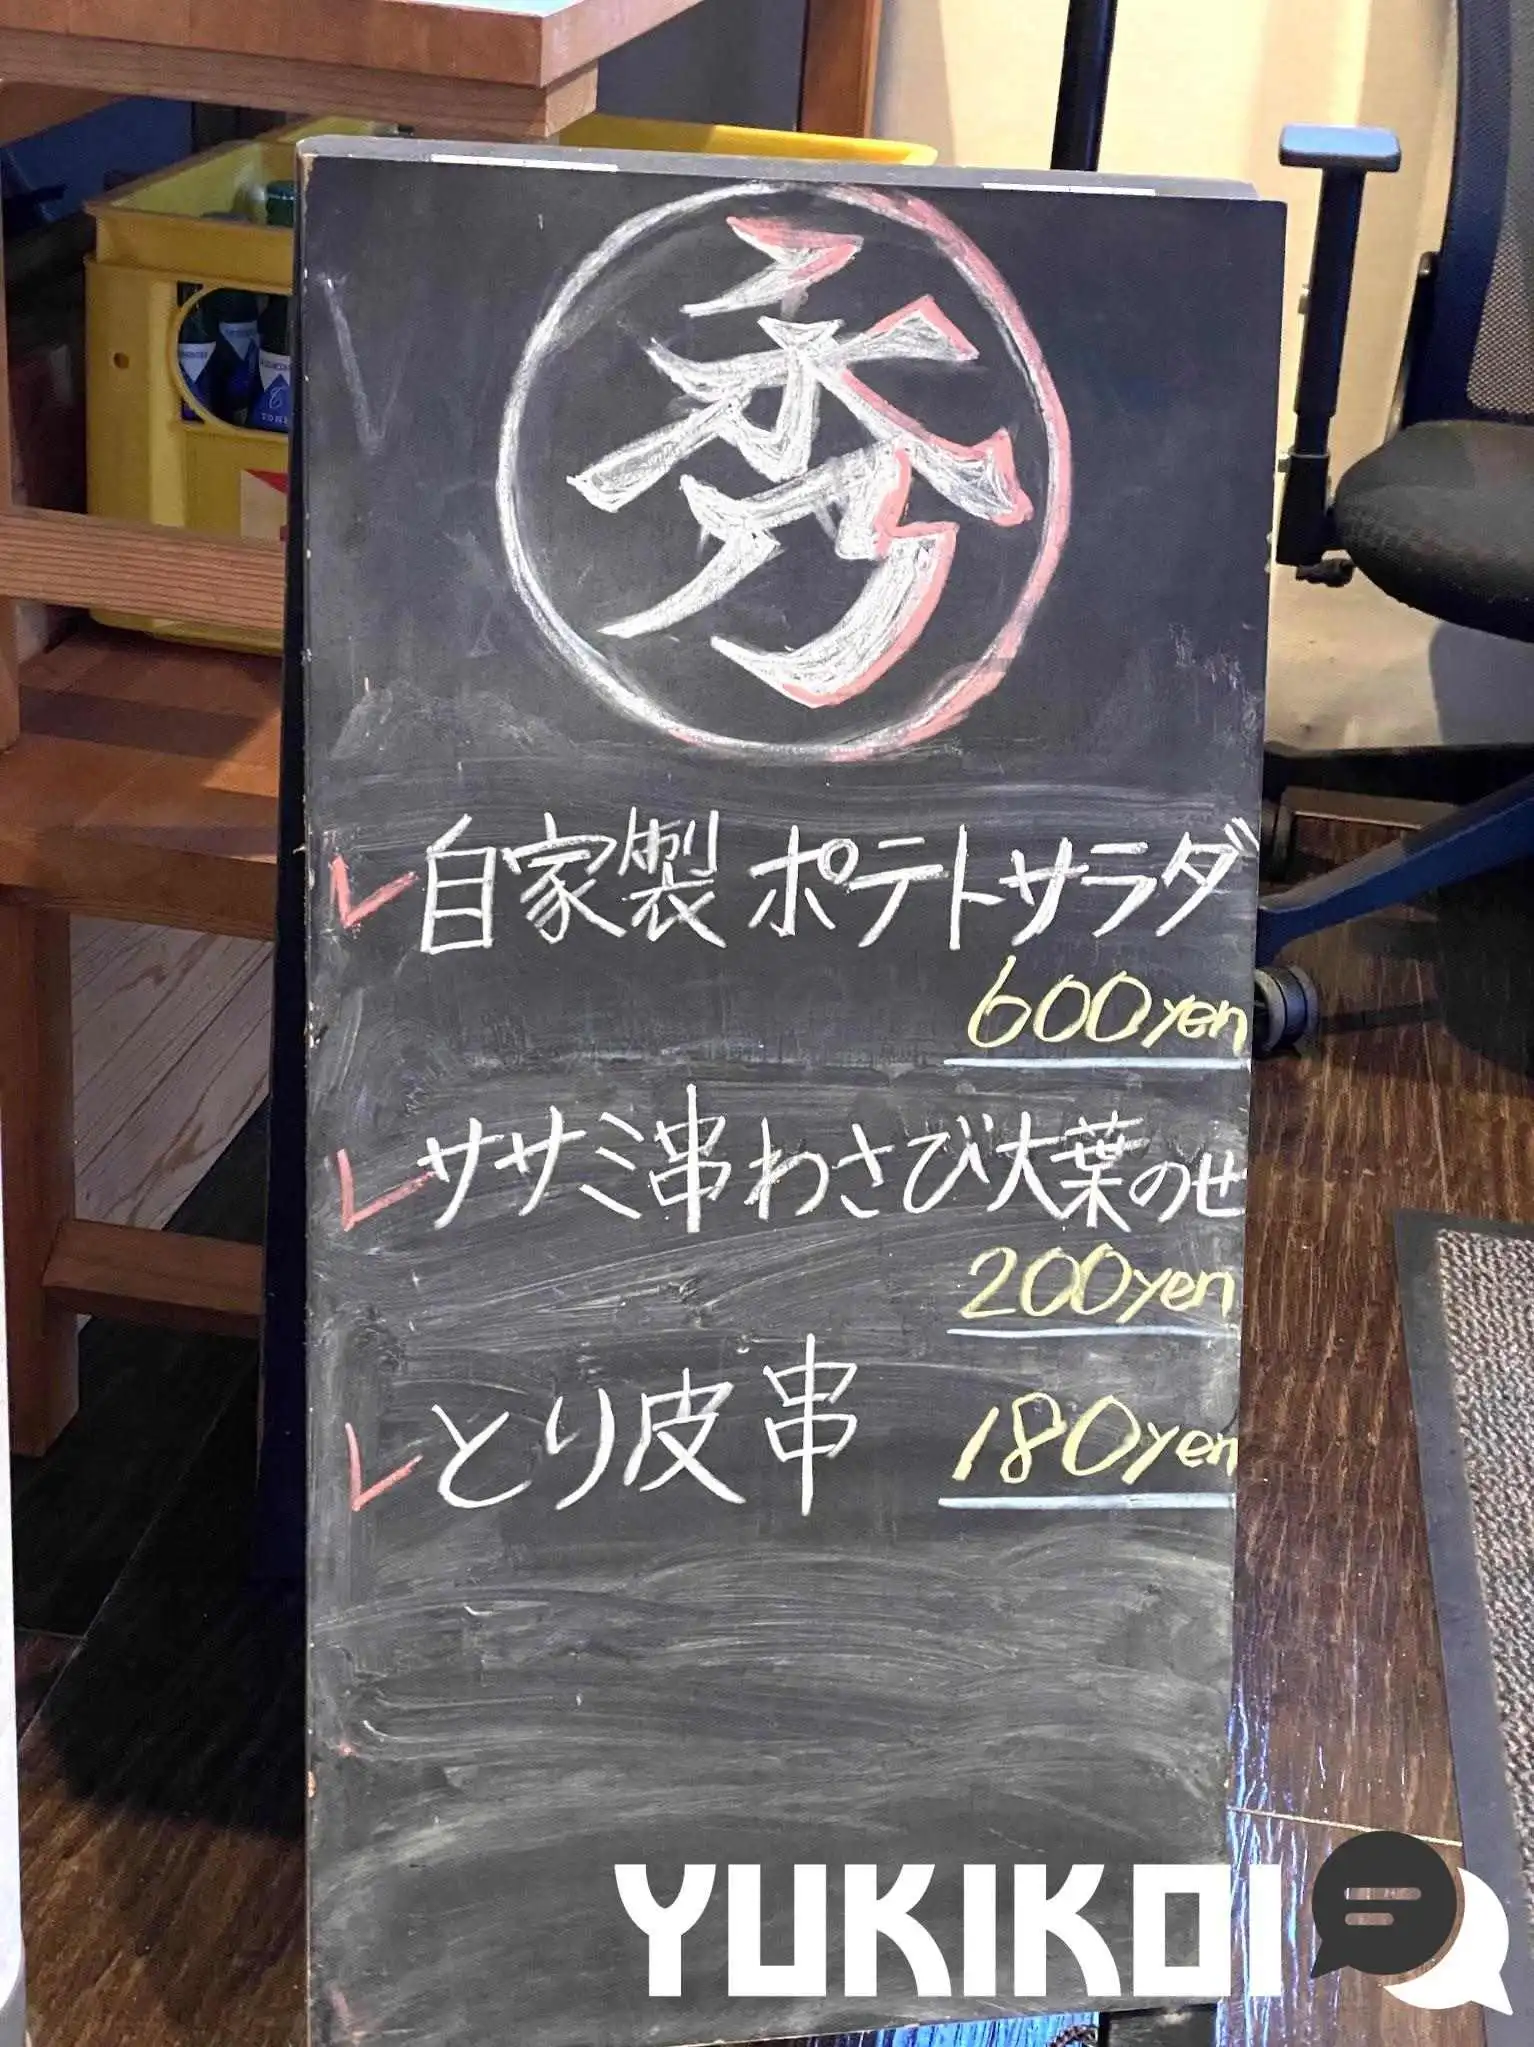 秀
自家製 ポテトサラダ
600yen
ササミ串わさび大葉のせ
200yen
とり皮串 180yen
YUKIKOI